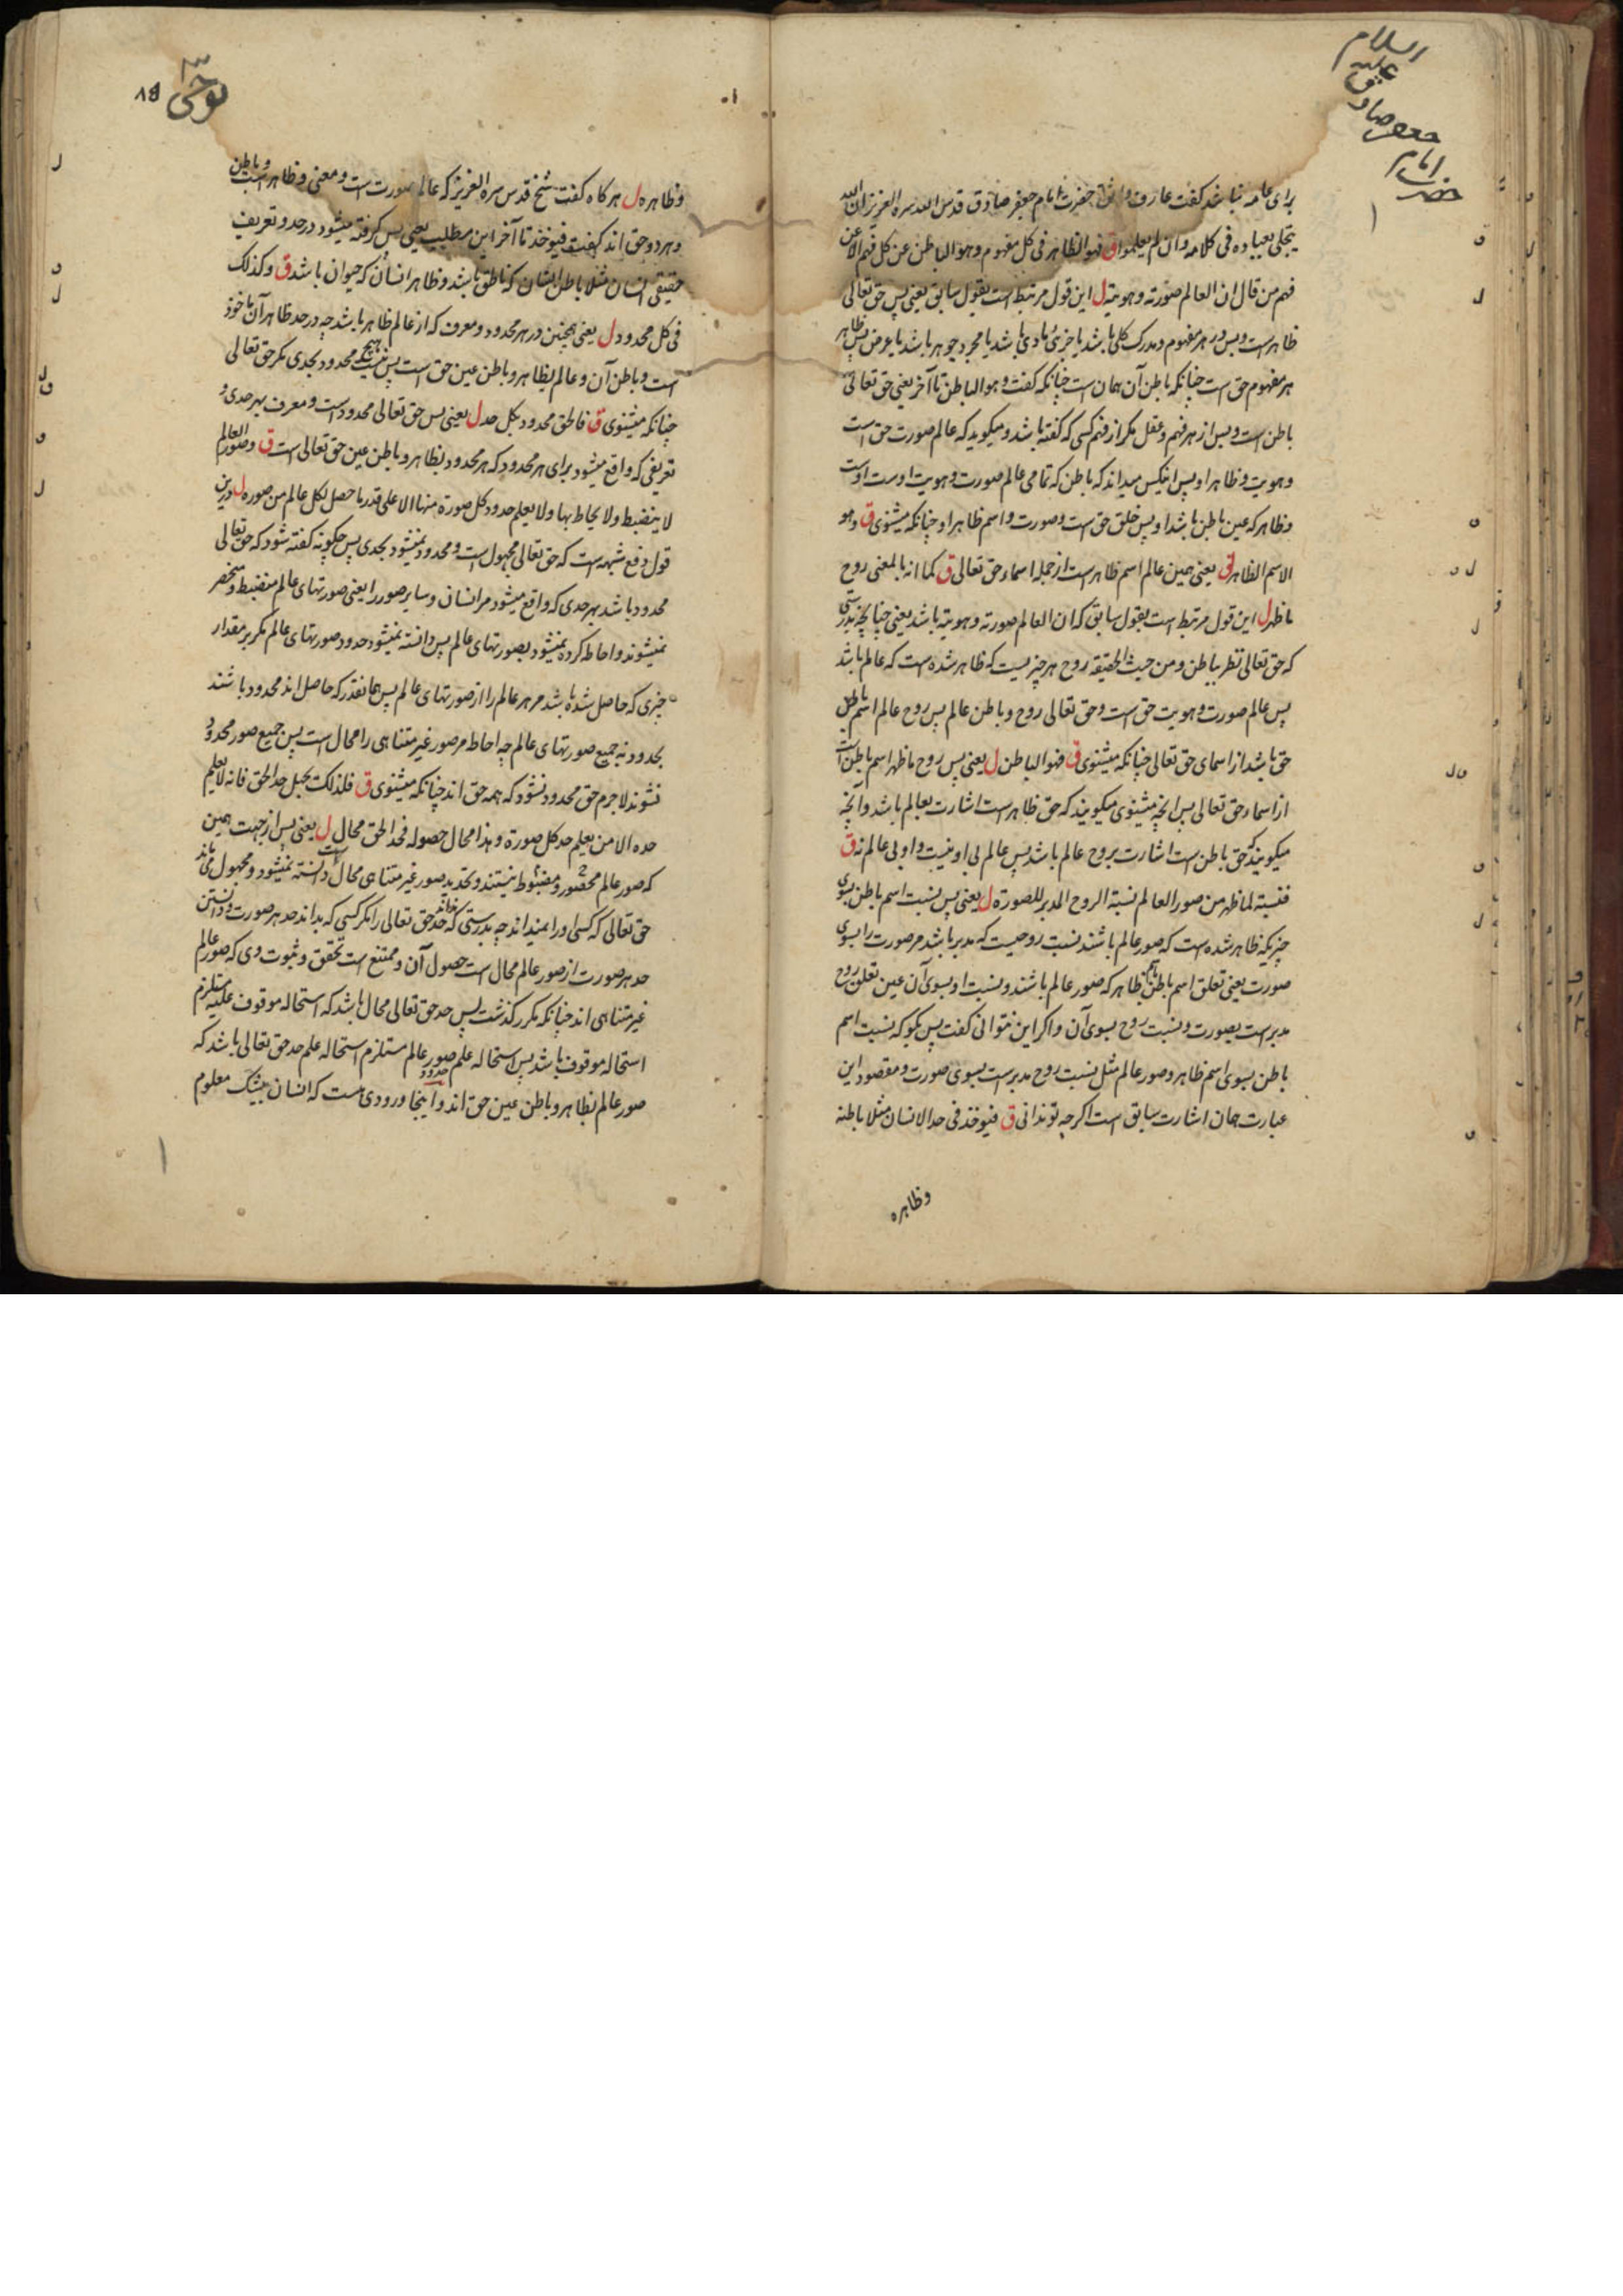 السلام
علیه
صادق
جعفر
امام
حضرت
برای عامه نباشد گفت عارف واثق حضرت امام جعفر صادق قدس الله سره العزیز ان الله
یتجلی بعباده فی کلامه وان لم یعلموا ق فهو الظاهر فی کل مفهوم وهو الباطن عن کل فهم الا عن
فهم من قال ان العالم صورته وهویته ل این قول مرتبط است بقول سابق یعنی پس حق تعالی
ظاهر است و بس در هر مفهوم و مدرک کلی باشد یا جزی مادی باشد یا مجرد جوهر باشد یا عرض پس ظاهر
هر مفهوم حق است چنانکه باطن آن همان است چنانکه گفت و هو الباطن تا آخر یعنی حق تعالی
باطن است و بس از هر فهم و عقل مگر از فهم کسی که گفته باشد و میگوید که عالم صورت حق است
و هویت و ظاهر او پس اینکس میداند که باطن که تمامی عالم صورت و هویت اوست اوست
و ظاهر که عین باطن باشد او پس خلق حق است و صورت و اسم ظاهر او چنانکه میشنوی ق وهو
الاسم الظاهر ل یعنی همین عالم اسم ظاهر است از جمله اسماء حق تعالی ق کما انه بالمعنی روح
ما ظهر ل این قول مرتبط است بقول سابق که ان العالم صورته وهویته باشد یعنی چنانچه بدرستی
که حق تعالی نظر بباطن ومن حیث الحقیقه روح هر چیزیست که ظاهر شده است که عالم باشد
پس عالم صورت و هویت حق است و حق تعالی روح و باطن عالم پس روح عالم اسم باطن
حق باشد از اسمای حق تعالی چنانکه میشنوی ق فهو الباطن ل یعنی پس روح ما ظهر اسم باطن است
از اسماء حق تعالی پس انچه میشنوی میگویند که حق ظاهر است اشارت بعالم باشد وانچه
میگویند که حق باطن است اشارت بروح عالم باشد پس عالم بی او نیست و او بی عالم نه ق
فنسبته لما ظهر من صور العالم نسبة الروح المدبر للصورة ل یعنی پس نسبت اسم باطن بسوی
چیزیکه ظاهر شده است که صور عالم باشند نسبت روحیست که مدبر باشد مر صورت را بسوی
صورت یعنی تعلق اسم باطن باسم ظاهر که صور عالم باشند و نسبت او بسوی آن عین تعلق روح
مدبر است بصورت و نسبت روح بسوی آن و اگر این نتوانی گفت پس بگو که نسبت اسم
باطن بسوی اسم ظاهر و صور عالم مثل نسبت روح مدبر است بسوی صورت و مقصود این
عبارت همان اشارت سابق است اگر چه تو ندانی ق فیوخذ فی حد الانسان مثلا باطنه
وظاهره
نوحی
۸۵
وظاهره ل هر گاه گفت شیخ قدس سره العزیز که عالم صورت است و معنی و ظاهر است و باطن
و هر دو حق اند گفت فیوخذ تا آخر این مطلب یعنی پس گرفته میشود در حد و تعریف
حقیقی انسان مثلا باطن انسان که ناطق باشد و ظاهر انسان که حیوان باشد ق وکذلک
فی کل محدود ل یعنی همچنین در هر محدود و معرف که از عالم ظاهر باشد چه در حد ظاهر آن ماخوذ
است و باطن آن و عالم بظاهر و باطن عین حق است پس نیست هیچ محدود بحدی مگر حق تعالی
چنانکه میشنوی ق فالحق محدود بکل حد ل یعنی پس حق تعالی محدود است و معرف بهر حدی و
تعریفی که واقع میشود برای هر محدود که هر محدود بظاهر و باطن عین حق تعالی است ق وصور العالم
لا ینضبط ولا یحاط بها ولا یعلم حدود کل صورة منها الا علی قدر ما حصل لکل عالم من صوره ل درین
قول دفع شبهه است که حق تعالی مجهول است و محدود نمیشود بحدی پس چگونه گفته شود که حق تعالی
محدود باشد بهر حدی که واقع میشود مر انسان و سایر صور را یعنی صورتهای عالم منضبط و منحصر
نمیشوند و احاطه کرده نمیشود بصورتهای عالم پس دانسته نمیشود حدود صورتهای عالم مگر بر مقدار
چیزی که حاصل شده باشد مر هر عالم را از صورتهای عالم پس همانقدر که حاصل اند محدود باشند
بحدود نه جمیع صورتهای عالم چه احاطه مر صور غیر متناهی را محال است پس جمیع صور محدود
نشوند لاجرم حق محدود نشود که همه حق اند چنانکه میشنوی ق فلذلک یجهل حد الحق فانه لا یعلم
حده الا من یعلم حد کل صورة و هذا محال حصوله فحد الحق محال ل یعنی پس از جهت همین
که صور عالم محصور و مضبوط نیستند و تحدید صور غیر متناهی محال است دانسته نمیشود و مجهول می‌ماند
حق تعالی که کسی او را نمیداند چه بدرستی که نداند حد حق تعالی را مگر کسی که بداند حد هر صورت و دانستن
حد هر صورت از صور عالم محال است حصول آن و ممتنع است تحقق و ثبوت وی که صور عالم
غیر متناهی اند چنانکه مکرر گذشت پس حد حق تعالی محال باشد که استحاله موقوف علیه مستلزم
استحاله موقوف باشد پس استحاله علم حدود صور عالم مستلزم استحاله علم حد حق تعالی باشد که
صور عالم بظاهر و باطن عین حق اند و اینجا ورودی هست که انسان بیشک معلوم